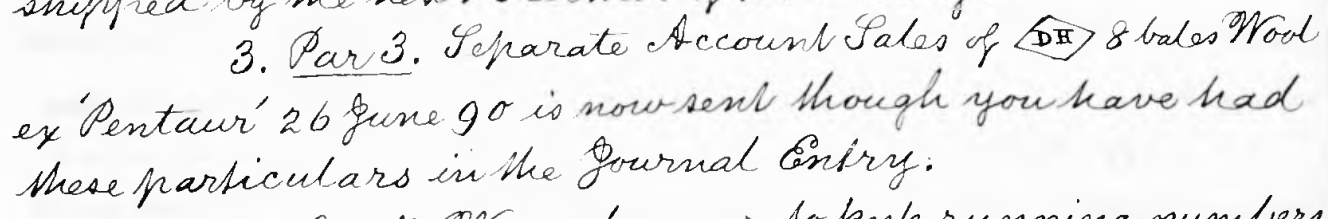 shipped by me next
3. Par 3. Separate Account Sales of DH 8 bales Wool
ex 'Pentaur' 26 June 90 is now sent though you have had
these particulars in the Journal Entry.
to keep running numbers